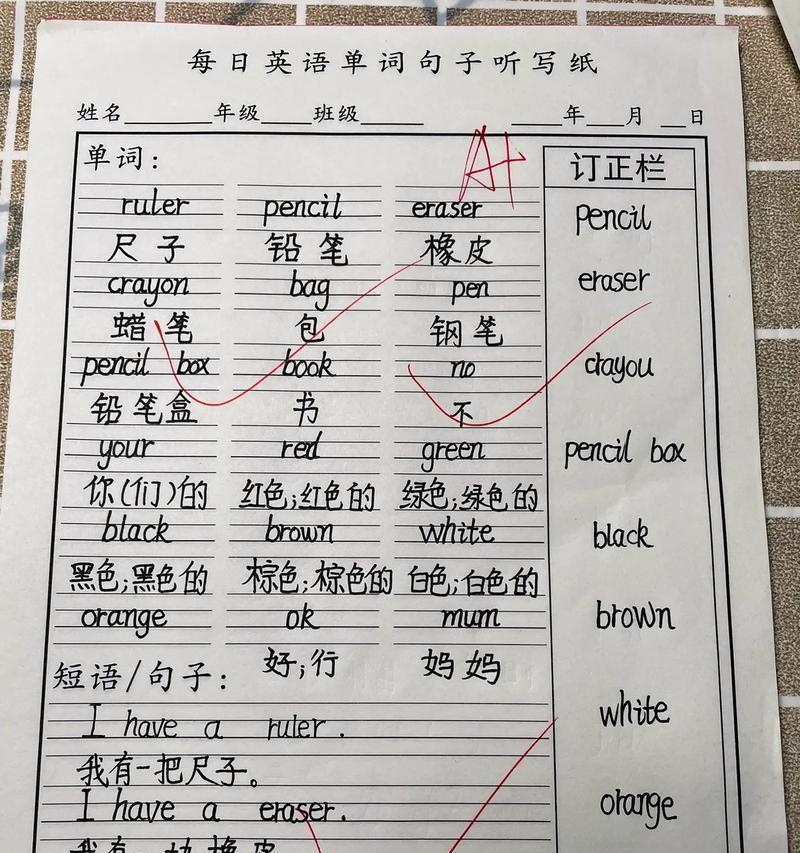 每日英语单词句子听写纸
姓名 年级 班级 年 月 日
单词: A+ 订正栏
ruler pencil eraser
尺子 铅笔 橡皮
crayon bag pen
蜡笔 包 钢笔
pencil box book no
铅笔盒 书 不
your red green
你(们)的 红色;红色的 绿色;绿色的
black brown white
黑色;黑色的 棕色;棕色的 白色;白色的
orange ok mum
好;行 妈妈
短语/句子:
I have a ruler.
我有一把尺子。
I have a eraser.
我有一块橡皮
pencil
eraser
crayou
pencil box
black
brown
white
orange